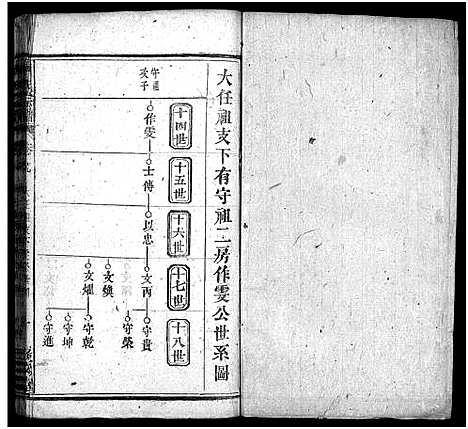 大任祖支下有守祖二房作雯公世系圖
十四世
十五世
十六世
十七世
十八世
守祖次子
作雯
士傳
以忠
文丙
守貴
守榮
文煥
文燿
守乾
守坤
守進